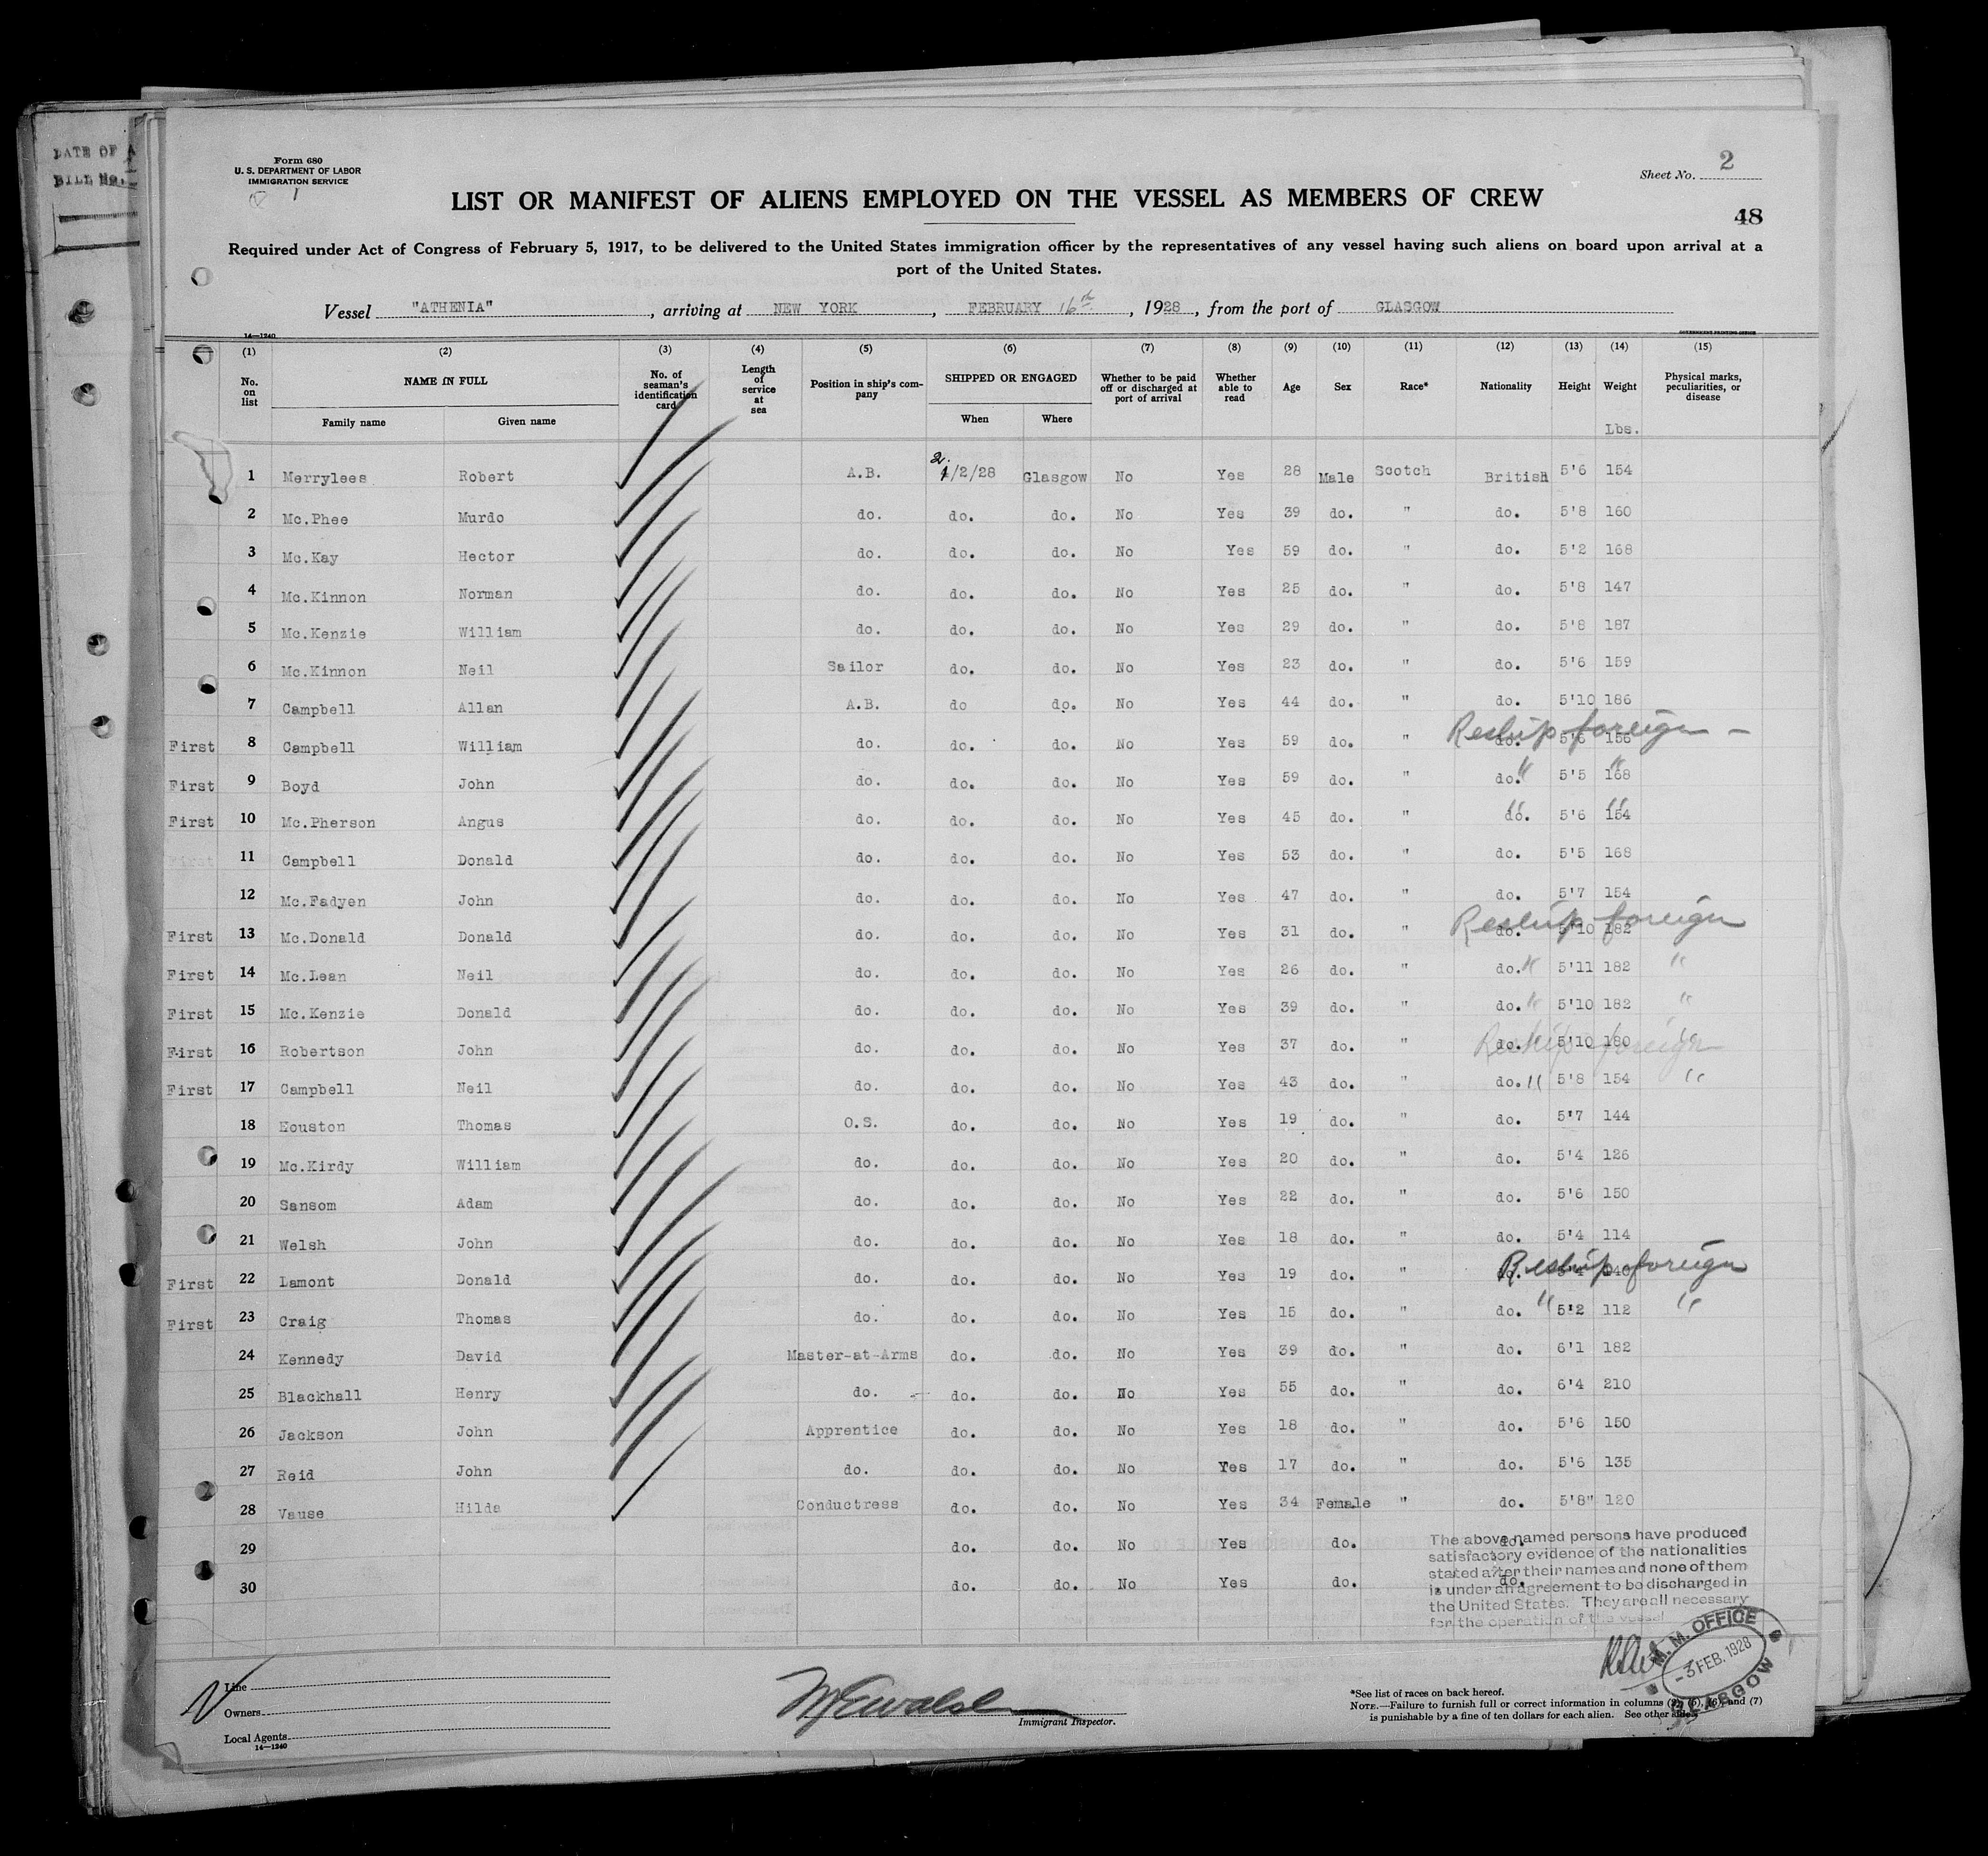 DATE OF A
BILL No.
Form 680
U. S. DEPARTMENT OF LABOR
IMMIGRATION SERVICE
Sheet No. 2
48
LIST OR MANIFEST OF ALIENS EMPLOYED ON THE VESSEL AS MEMBERS OF CREW
Required under Act of Congress of February 5, 1917, to be delivered to the United States immigration officer by the representatives of any vessel having such aliens on board upon arrival at a
port of the United States.
Vessel "ATHENIA", arriving at NEW YORK, FEBRUARY 16th, 1928, from the port of GLASGOW
14—1240 GOVERNMENT PRINTING OFFICE
(1) (2) (3) (4) (5) (6) (7) (8) (9) (10) (11) (12) (13) (14) (15)
No. on list NAME IN FULL Family name Given name No. of seaman's identification card Length of service at sea Position in ship's company SHIPPED OR ENGAGED When Where Whether to be paid off or discharged at port of arrival Whether able to read Age Sex Race* Nationality Height Weight Lbs. Physical marks, peculiarities, or disease
1 Merrylees Robert A.B. 2. 1/2/28 Glasgow No Yes 28 Male Scotch British 5'6 154
2 Mc.Phee Murdo do. do. do. No Yes 39 do. " do. 5'8 160
3 Mc.Kay Hector do. do. do. No Yes 59 do. " do. 5'2 168
4 Mc.Kinnon Norman do. do. do. No Yes 25 do. " do. 5'8 147
5 Mc.Kenzie William do. do. do. No Yes 29 do. " do. 5'8 187
6 Mc.Kinnon Neil Sailor do. do. No Yes 23 do. " do. 5'6 159
7 Campbell Allan A.B. do do. No Yes 44 do. " do. 5'10 186
First 8 Campbell William do. do. do. No Yes 59 do. " do. 5'6 156 Reship foreign -
First 9 Boyd John do. do. do. No Yes 59 do. " do. " 5'5 168 "
First 10 Mc.Pherson Angus do. do. do. No Yes 45 do. " do. " 5'6 154 "
First 11 Campbell Donald do. do. do. No Yes 53 do. " do. 5'5 168
12 Mc.Fadyen John do. do. do. No Yes 47 do. " do. 5'7 154
First 13 Mc.Donald Donald do. do. do. No Yes 31 do. " do. 5'10 182 Reship foreign
First 14 Mc.Lean Neil do. do. do. No Yes 26 do. " do. " 5'11 182 "
First 15 Mc.Kenzie Donald do. do. do. No Yes 39 do. " do. " 5'10 182 "
First 16 Robertson John do. do. do. No Yes 37 do. " do. " 5'10 180 " Reship foreign
First 17 Campbell Neil do. do. do. No Yes 43 do. " do. " 5'8 154 "
18 Houston Thomas O.S. do. do. No Yes 19 do. " do. 5'7 144
19 Mc.Kirdy William do. do. do. No Yes 20 do. " do. 5'4 126
20 Sansom Adam do. do. do. No Yes 22 do. " do. 5'6 150
21 Welsh John do. do. do. No Yes 18 do. " do. 5'4 114
First 22 Lamont Donald do. do. do. No Yes 19 do. " do. 5'4 140 Reship foreign
First 23 Craig Thomas do. do. do. No Yes 15 do. " do. " 5'2 112 "
24 Kennedy David Master-at-Arms do. do. No Yes 39 do. " do. 6'1 182
25 Blackhall Henry do. do. do. No Yes 55 do. " do. 6'4 210
26 Jackson John Apprentice do. do. No Yes 18 do. " do. 5'6 150
27 Reid John do. do. do. No Yes 17 do. " do. 5'6 135
28 Vause Hilda Conductress do. do. No Yes 34 Female " do. 5'8" 120
29 do. do. No Yes do. do.
30 do. do. No Yes do. do.
The above named persons have produced
satisfactory evidence of the nationalities
stated after their names and none of them
is under an agreement to be discharged in
the United States. They are all necessary
for the operation of the vessel
M.M. OFFICE
-3 FEB. 1928
GLASGOW
Line
Owners
Local Agents
14—1240
Immigrant Inspector.
*See list of races on back hereof.
NOTE.—Failure to furnish full or correct information in columns (2), (5), (6), and (7)
is punishable by a fine of ten dollars for each alien. See other side.